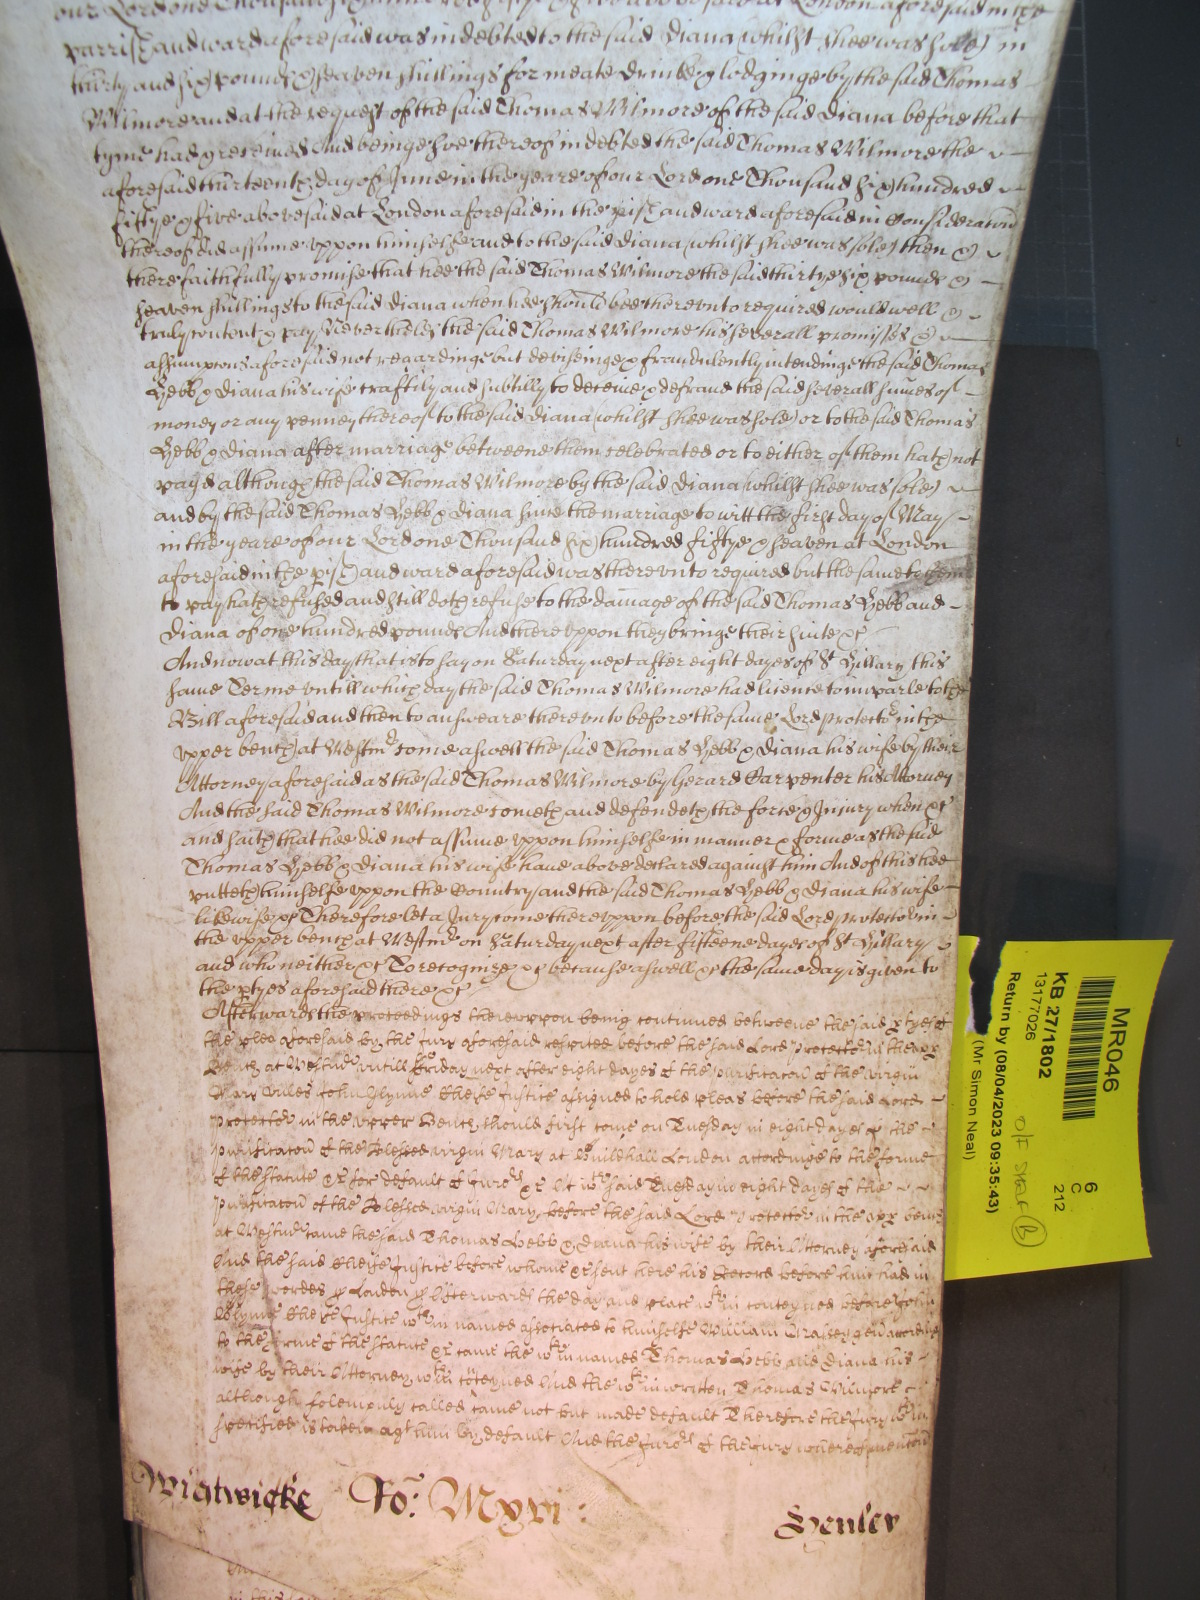 our Lord one Thousand six hundred fiftye & five abovesaid at London aforesaid in the
parrish and ward aforesaid was indebted to the said Diana (whilst shee was sole) in
thirty and six pounds & seaven shillings for meate drinke & lodginge by the said Thomas
Wilmore and at the request of the said Thomas Wilmore of the said Diana before that
tyme had & received And beinge soe thereof indebted the said Thomas Wilmore the
aforesaid thirteenth day of June in the yeare of our Lord one Thousand six hundred
fiftye & five abovesaid at London aforesaid in the pish and ward aforesaid in Consideracon
thereof did assume uppon himselfe and to the said Diana (whilst shee was sole) then &
there faithfully promise that hee the said Thomas Wilmore the said thirtye six pounds &
seaven shillings to the said Diana when hee should bee thereunto required would well &
truly content & pay Neverthelesse the said Thomas Wilmore his severall promisses &
assumptons aforesaid not regardinge but deviseinge & fraudulently intendinge the said Thomas
Hebb & Diana his wife craftily and subtilly to deceive & defraud the said severall summes of
money or any penney thereof to the said Diana (whilst shee was sole) or to the said Thomas
Hebb & Diana after marriage betweene them celebrated or to either of them hath not
payd although the said Thomas Wilmore by the said Diana (whilst shee was sole)
and by the said Thomas Hebb & Diana since the marriage to witt the first day of May
in the yeare of our Lord one Thousand six hundred fiftye & seaven at London
aforesaid in the pish and ward aforesaid was thereunto required but the same to them
to pay hath refused and still doth refuse to the damage of the said Thomas Hebb and
Diana of one hundred pounds And thereuppon they bringe their suite &c
And now at this day that is to say on Saturday next after eight dayes of St Hillary this
same Terme untill which day the said Thomas Wilmore had licence to imparle to the
Bill aforesaid and then to answeare thereunto before the same Lord Protector in the
upper bench at Westmr come aswell the said Thomas Hebb & Diana his wife by their
Attorney aforesaid as the said Thomas Wilmore by Gerard Carpenter his Attorney
And the said Thomas Wilmore cometh and defendeth the force & Injury when &c
and saith that hee did not assume uppon himselfe in manner & forme as the said
Thomas Hebb & Diana his wife have above declared against him And of this hee
putteth himselfe uppon the Country and the said Thomas Hebb & Diana his wife
likewise &c Therefore let a Jury come thereuppon before the said Lord Protector in
the upper bench at Westmr on Saturday next after fifteene dayes of St Hillary
and who neither &c To recognize &c because aswell &c the same day is given to
the ptyes aforesaid there &c
Afterwards the proceedings thereuppon being continued betweene the said ptyes of
the plea aforesaid by the Jury aforesaid respited before the said Lord Protector in the upp
Bench at Westmr untill Friday next after eight dayes of the purificacon of the virgin
Mary Unles John Glynne Cheife Justice assigned to hold pleas before the said Lord
Protector in the upper Bench should first come on Tuesday in eight dayes of the
purificacon of the Blessed virgin Mary at Guildhall London accordinge to the forme
of the statute &c for default of Jurors &c At wch said Tuesday in eight dayes of the
purificacon of the Blessed virgin Mary before the said Lord Protector in the upp bench
at Westmr came the said Thomas Hebb & Diana his wife by their Attorney aforesaid
And the said Cheife Justice before whome &c sent here his Record before him had in
these wordes Afterwards the day and place wthin conteyned before John
Glynne Cheife Justice wthin named associated to himselfe William gen accordinge
to the forme of the statute &c came the wthin named Thomas Hebb and Diana his
wife by their Attorney wthin conteyned And the wthin written Thomas Wilmore
although solempnly called came not but made default Therefore the Jury wthin
specified is taken agt him by default And the Jurors of the Jury
Wightwicke Ro: Mxvi: Henley
MR046
KB 27/1802
13177026
Return by (08/04/2023 09:35:43)
(Mr Simon Neal)
6
C
212
O/F SHELF B